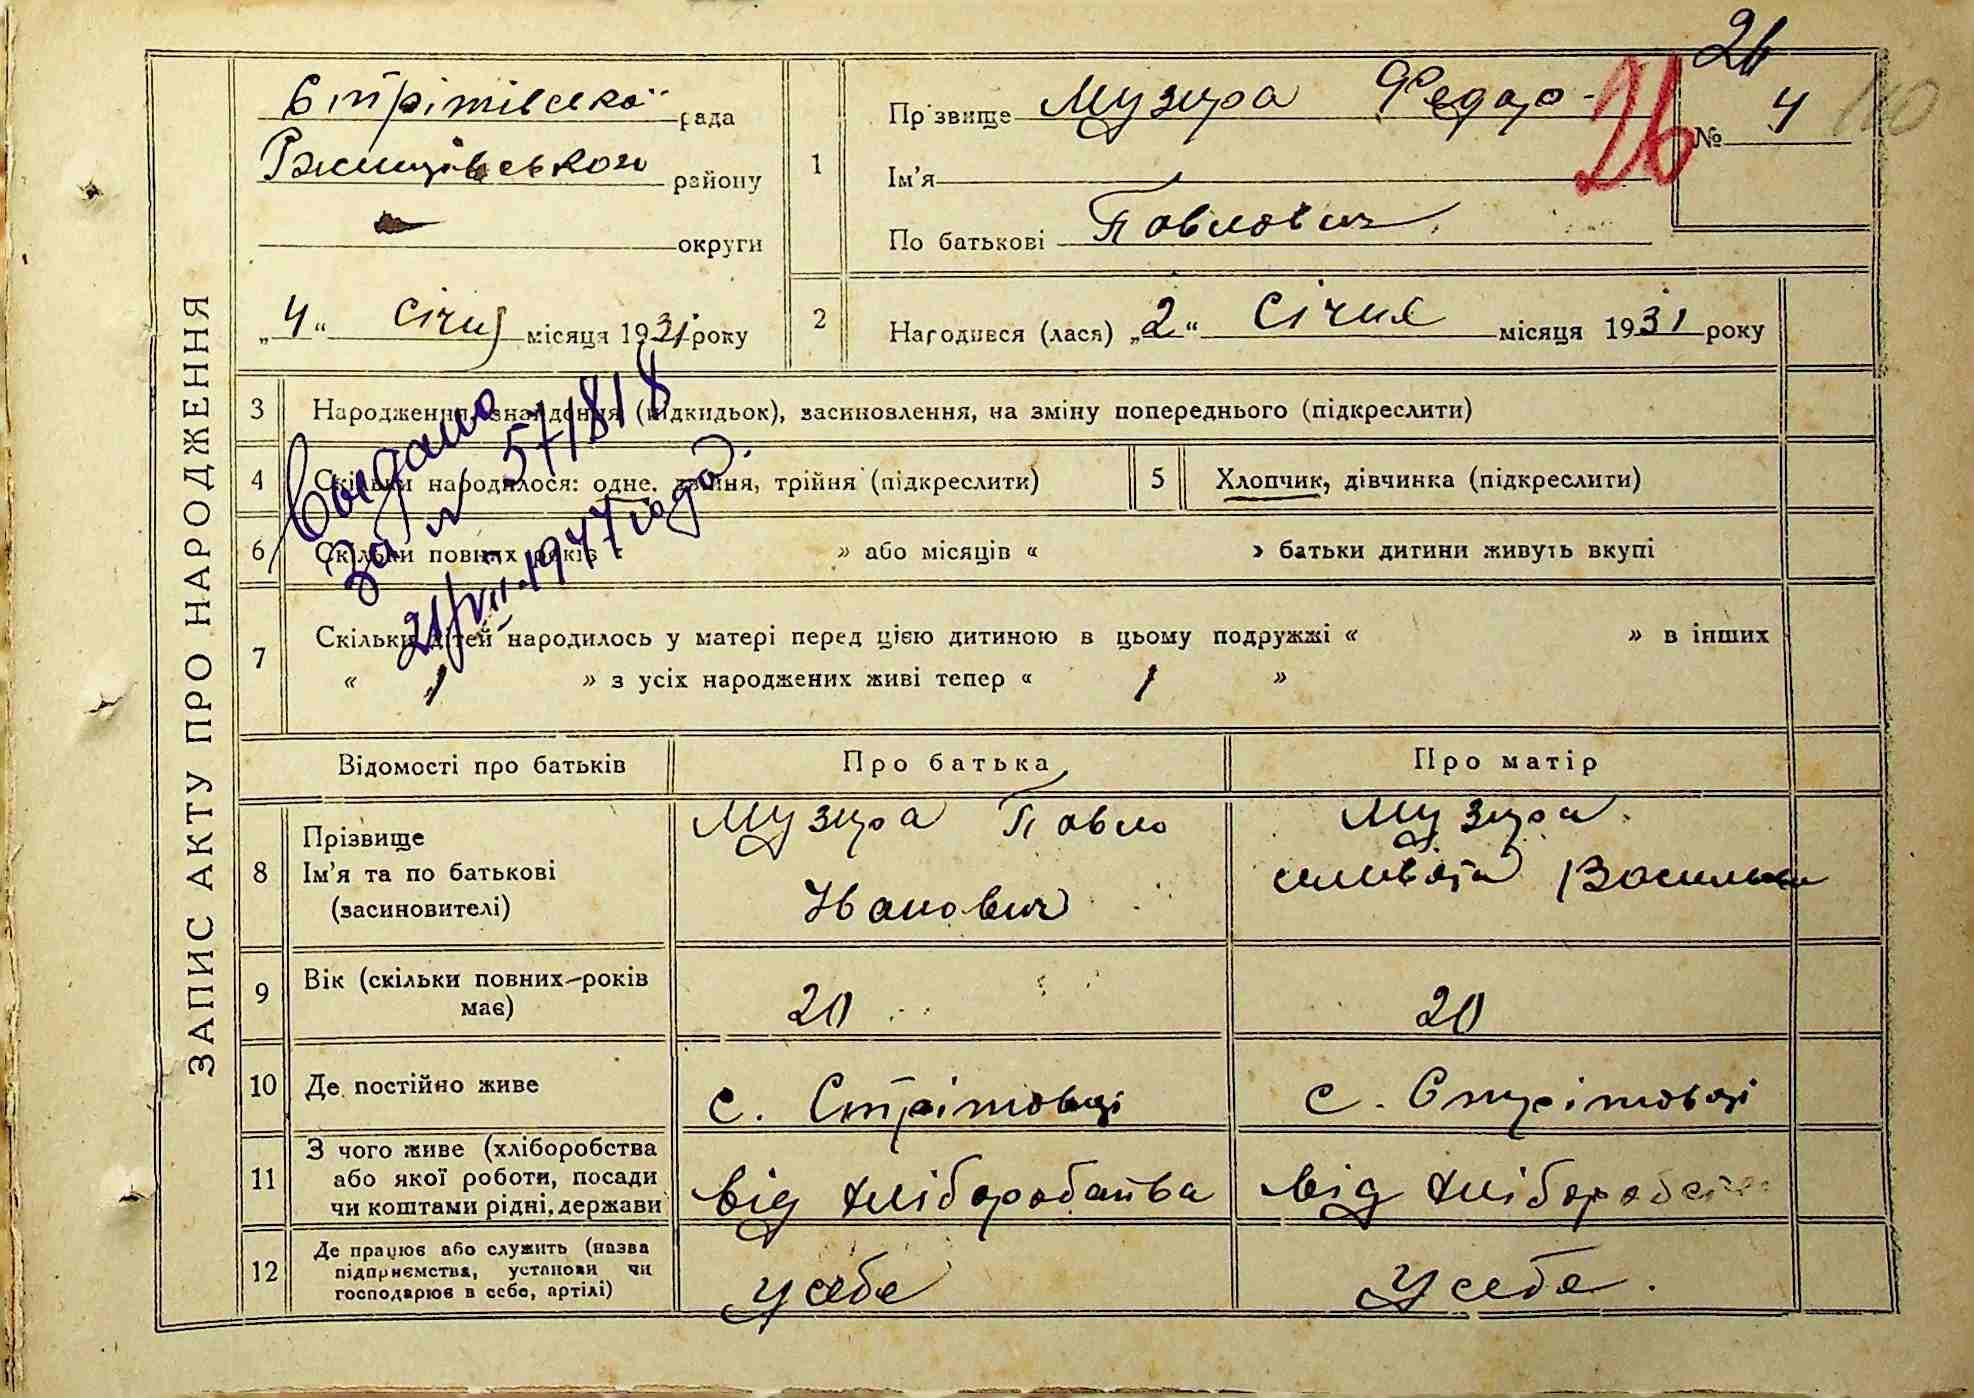 ЗАПИС АКТУ ПРО НАРОДЖЕННЯ
26
Стрітівської рада
Ржищівського району
округи
„4“ січня місяця 1931 року
1
Прізвище Музира Федор
Ім'я
По батькові Павлович
26
№ 4
110
2
Народився (лася) „2“ Січня місяця 1931 року
3 Народження, знайдення (підкидьок), засиновлення, на зміну попереднього (підкреслити)
4 Скільки народилося: одне, двійня, трійня (підкреслити)
5 Хлопчик, дівчинка (підкреслити)
6 Скільки повних років « » або місяців « » батьки дитини живуть вкупі
7 Скільки дітей народилось у матері перед цією дитиною в цьому подружжі « » в інших
« 1 » з усіх народжених живі тепер « 1 »
Выдано
За № 571818
21/VII-1947 года.
Відомості про батьків Про батька Про матір
8 Прізвище
Ім'я та по батькові
(засиновителі)
Музира Павло
Иванович
Музира
Василівна
9 Вік (скільки повних років
має)
20 20
10 Де постійно живе с. Стрітовці с. Стрітовці
11 З чого живе (хліборобства
або якої роботи, посади
чи коштами рідні, держави
від хліборобства від хліборобства
12 Де працює або служить (назва
підприємства, установи чи
господарює в себе, артілі)
у себе у себе.